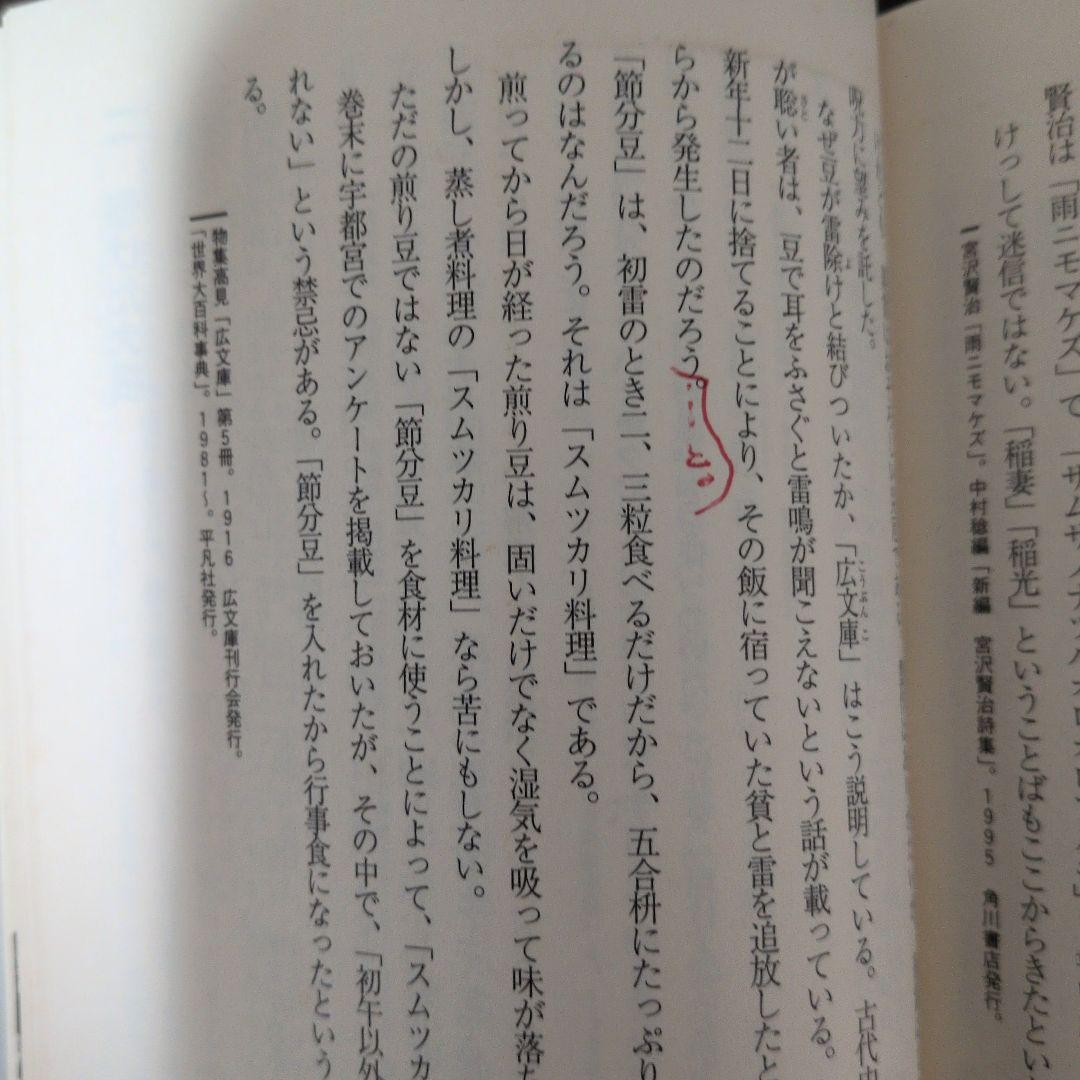 賢治は「雨ニモマケズ」で「サムサノナツハオロオロ
けっして迷信ではない。「稲妻」「稲光」ということばもここからきたとい
宮沢賢治「雨ニモマケズ」。中村稔編「新編 宮沢賢治詩集」。1995 角川書店発行。
呪力に望みを託した。
なぜ豆が雷除けと結びついたか、「広文庫」はこう説明している。古代中
よ
こうぶんこ
が聡い者は、豆で耳をふさぐと雷鳴が聞こえないという話が載っている。
さと
新年十二日に捨てることにより、その飯に宿っていた貧と雷を追放したと
らから発生したのだろう。
と。
「節分豆」は、初雷のとき二、三粒食べるだけだから、五合枡にたっぷり
るのはなんだろう。それは「スムツカリ料理」である。
煎ってから日が経った煎り豆は、固いだけでなく湿気を吸って味が落ち
しかし、蒸し煮料理の「スムツカリ料理」なら苦にもしない。
ただの煎り豆ではない「節分豆」を食材に使うことによって、「スムツカ
巻末に宇都宮でのアンケートを掲載しておいたが、その中で、「初午以外
れない」という禁忌がある。「節分豆」を入れたから行事食になったという
る。
物集高見「広文庫」第5冊。1916 広文庫刊行会発行。
「世界大百科事典」。1981〜。平凡社発行。